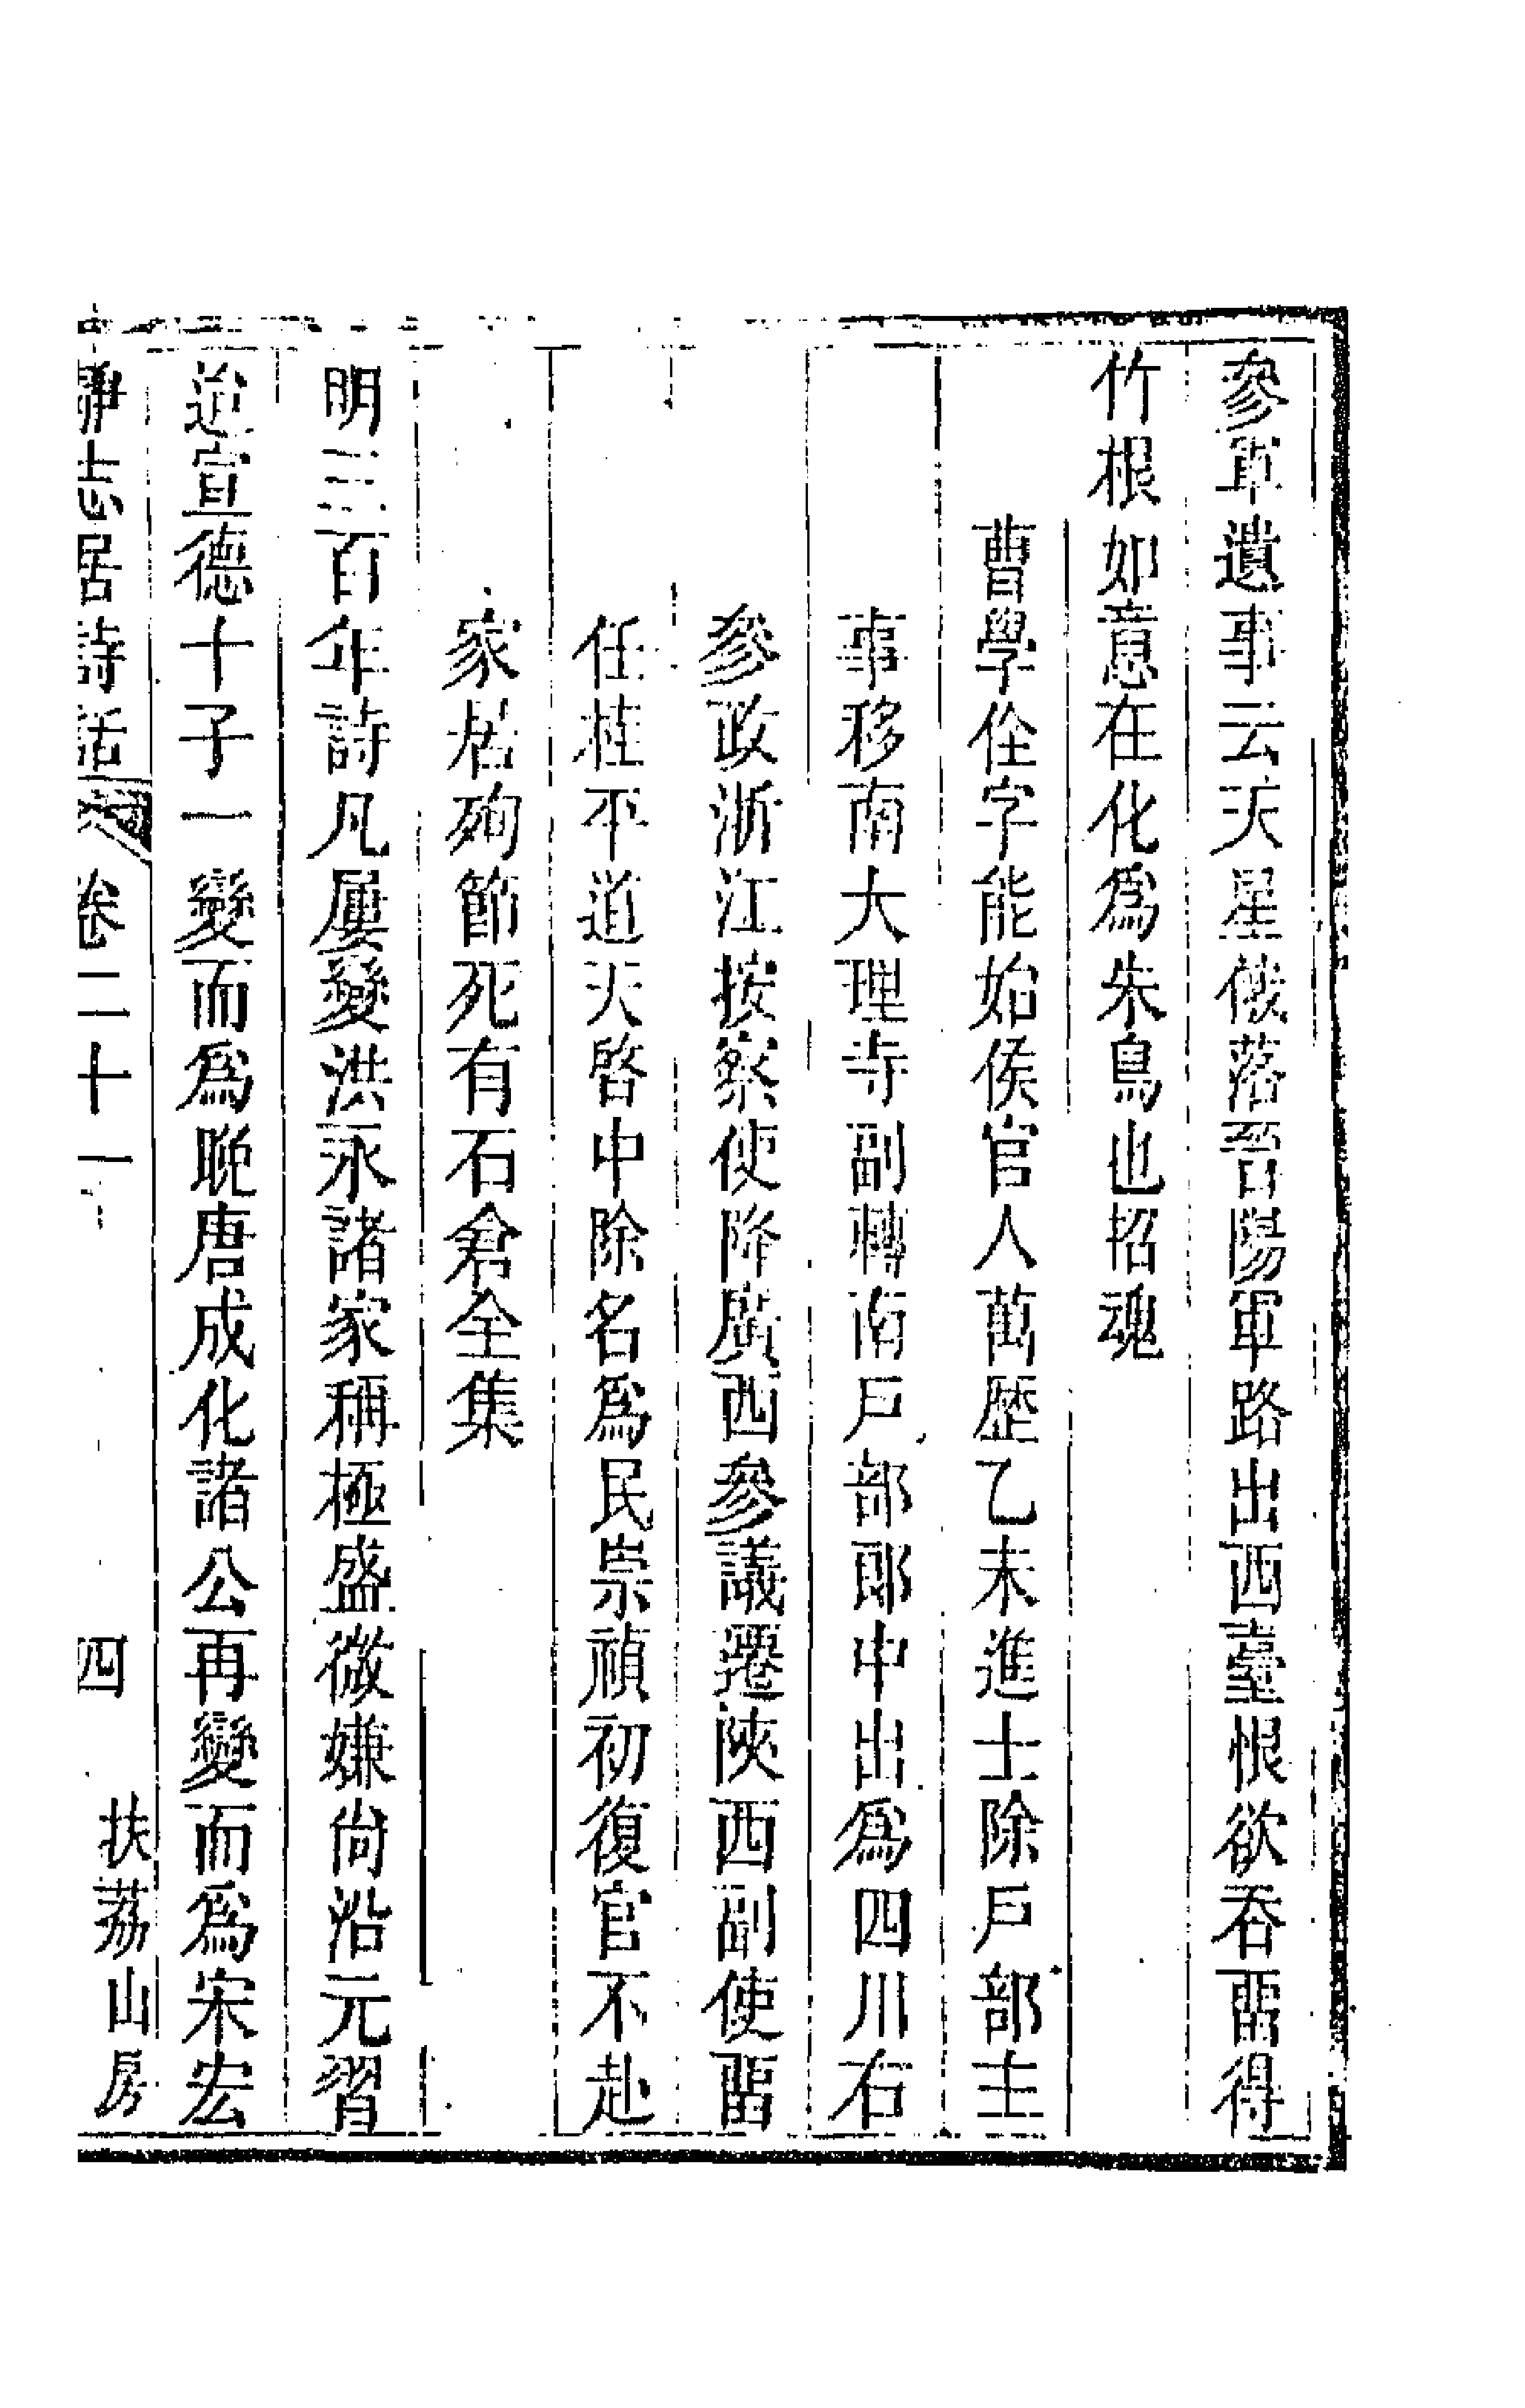 參軍遺事云天星俄落晉陽軍路出西臺恨欲吞畱得
竹根如意在化爲朱鳥也招魂
曹學佺字能始侯官人萬歷乙未進士除戶部主
事移南大理寺副轉南戶部郎中出爲四川右
參政浙江按察使降廣西參議遷陝西副使畱
任桂平道天啓中除名爲民崇禎初復官不赴
家居殉節死有石倉全集
明三百年詩凡屢變洪永諸家稱極盛微嫌尙沿元習
迨宣德十子一變而爲晚唐成化諸公再變而爲宋宏
靜志居詩話 卷二十一 四 扶荔山房